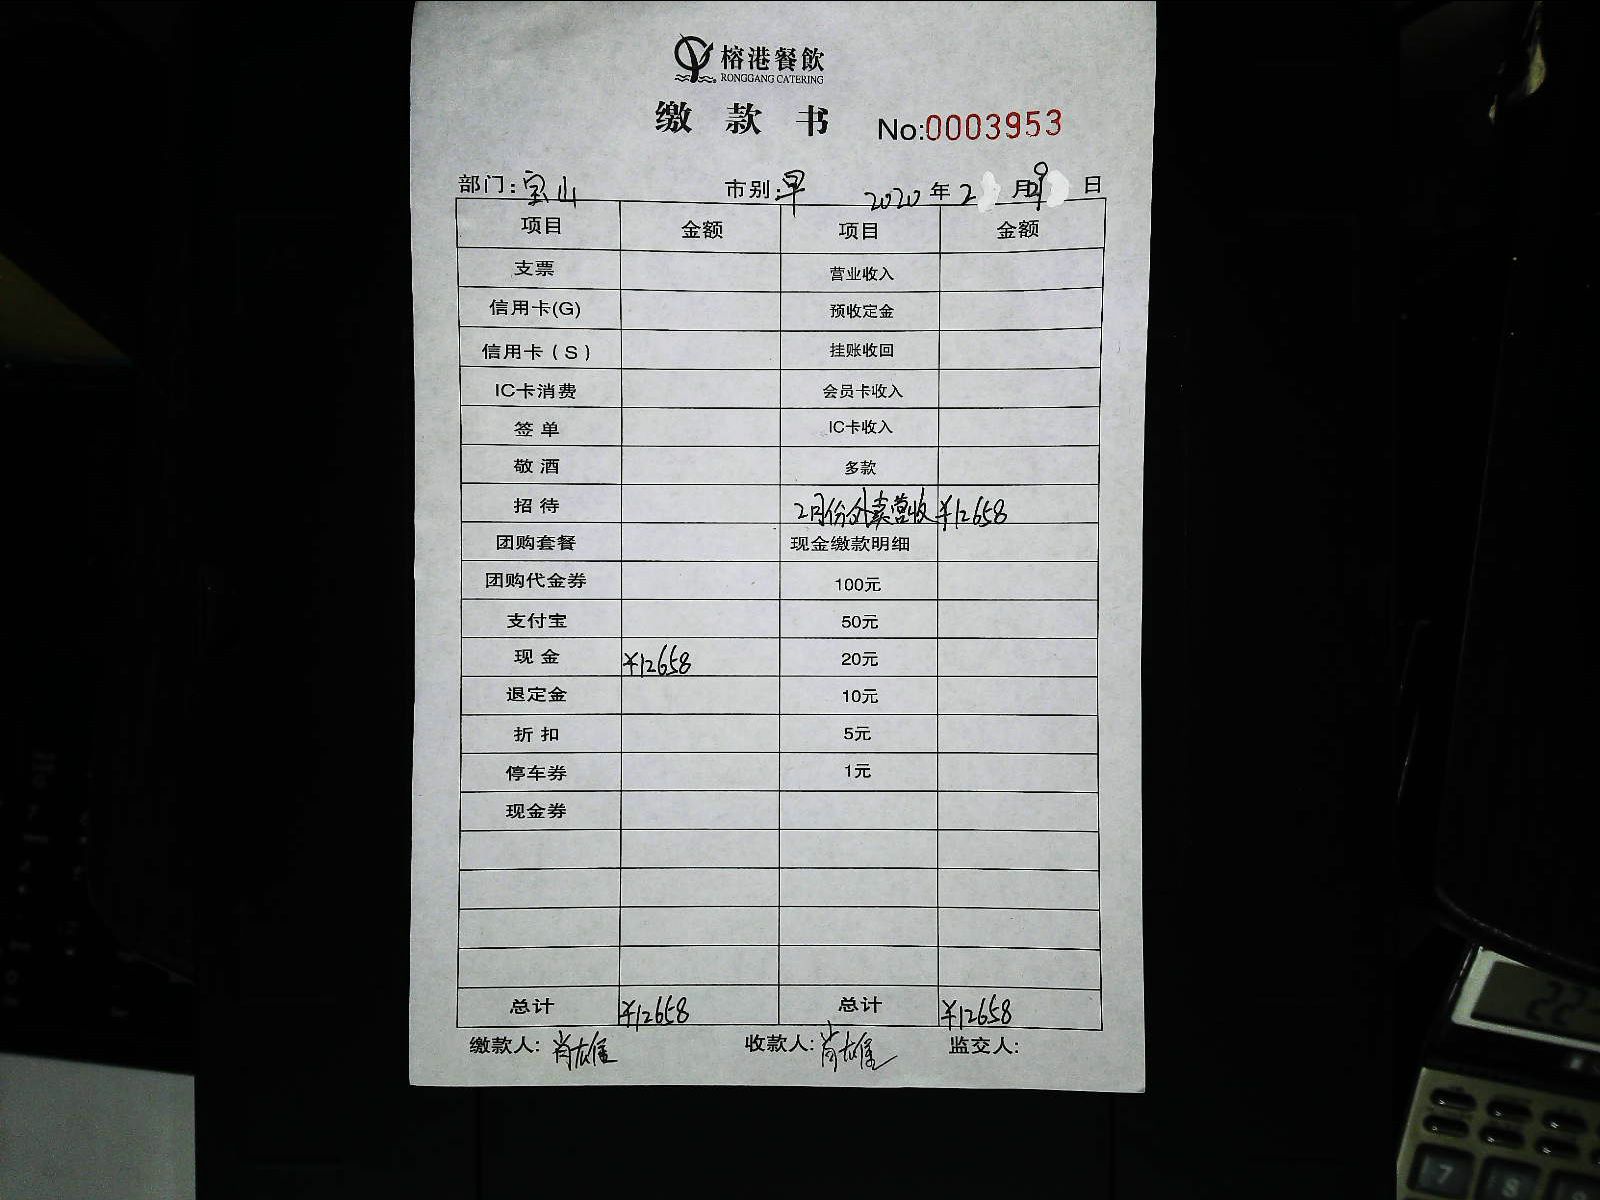 榕港餐飲
RONGGANG CATERING
缴款书
No:0003953
部门:宝山 市别:早 2020年2月29日
项目 金额 项目 金额
支票 营业收入
信用卡(G) 预收定金
信用卡(S) 挂账收回
IC卡消费 会员卡收入
签单 IC卡收入
敬酒 多款
招待 2月份外卖营收 ¥12658
团购套餐 现金缴款明细
团购代金券 100元
支付宝 50元
现金 ¥12658 20元
退定金 10元
折扣 5元
停车券 1元
现金券
总计 ¥12658 总计 ¥12658
缴款人: 收款人: 监交人:
7 8